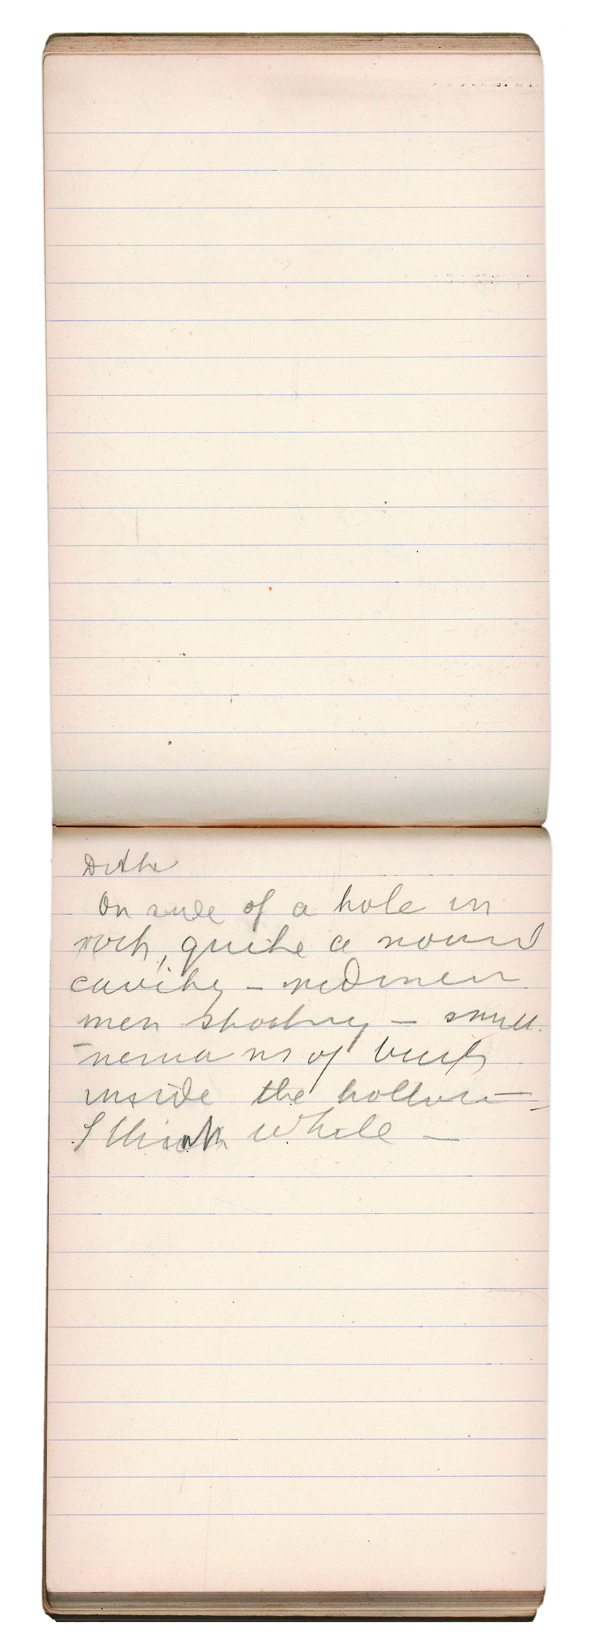 Ditto
On side of a hole in
rock, quite a round
cavity – red men
men shooting – small
remains of buck
inside the hollow –
I think white –